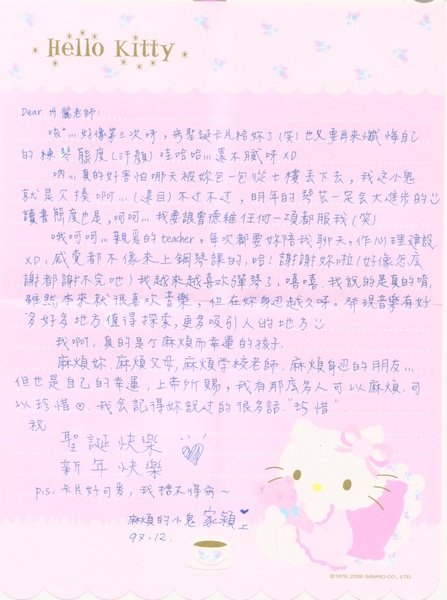 Hello Kitty
Dear 卅麗老師:
咳"... 好像第三次呀,寫聖誕卡片給妳了(笑) 也只要再來懺悔自己
的練琴態度(汗顏) 哇哈哈... 還不膩呀XD
吶... 真的好害怕哪天被妳包一包從七樓丟下去,我這小鬼
就是欠揍啊... (遠目) 不过不过,明年的琴藝一定会大進步的
讀書態度也是,呵呵... 我要讓曾德維任何一項都服我(笑)
哦呵呵... 親爱的teacher,每次都要妳陪我聊天,作心理建設
XD,感覺都不像來上鋼琴課的,哈! 謝謝妳啦(好像怎広
謝都謝不完吔) 我越來越喜欢彈琴了,嘻嘻,我說的是真的唷
雖然本來就很喜欢音樂,但在妳身边越久呀,發現音樂有好
多好多地方值得探索,更多吸引人的地方
我啊,真的是个麻煩而幸運的孩子.
麻煩妳.麻煩父母,麻煩学校老師.麻煩身边的朋友...
但也是自己的幸運.上帝所賜,我有那広多人可以麻煩.可
以珍惜♡.我会記得妳說过的很多話."珍惜".
祝
聖誕快樂
新年快樂
p.s. 卡片好可爱,我捨不得寫~
麻煩的小鬼 家穎上
97.12.
©1976, 2006 SANRIO CO., LTD.